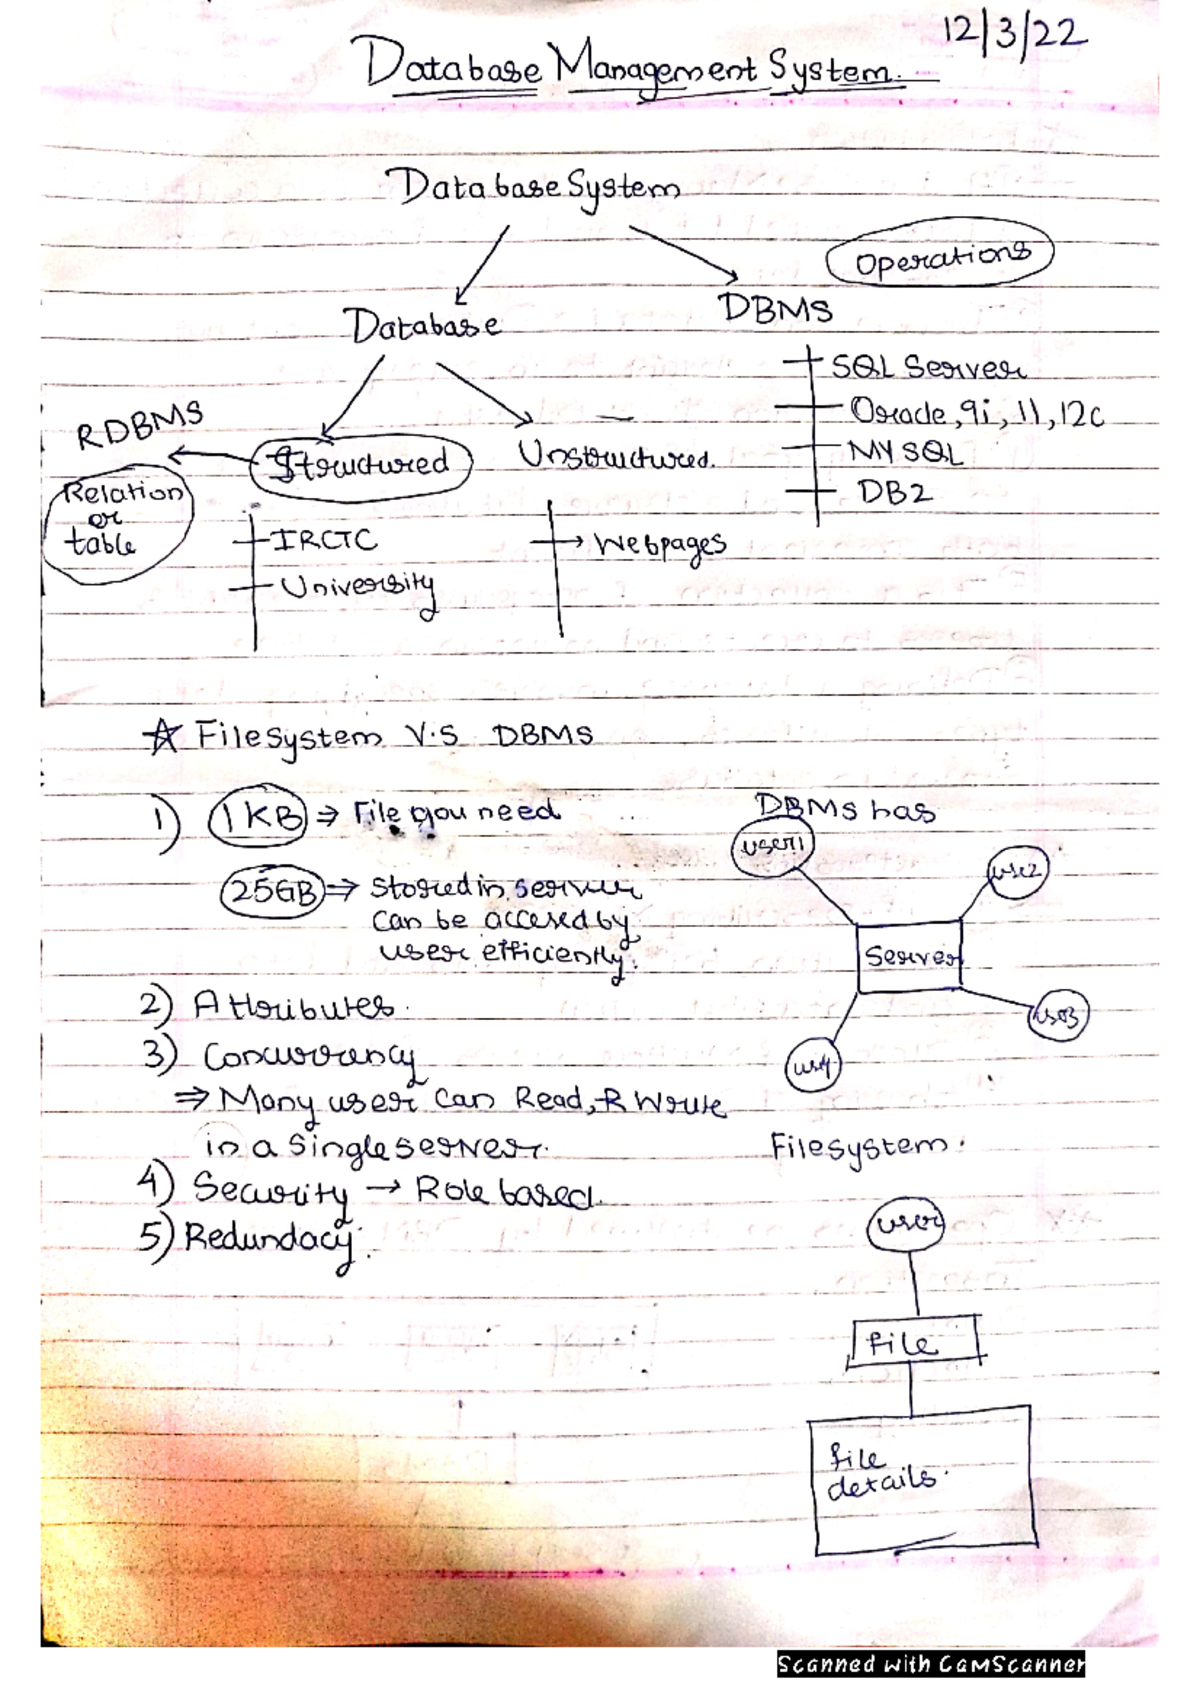 12/3/22
Database Management System.
Database System
Operations
Database
DBMS
SQL Server
Oracle, 9i, 11, 12c
MYSQL
DB2
RDBMS
Structured
Unstructured.
Relation
or
table
IRCTC
University
Webpages
☆ Filesystem V.S DBMS
1) 1 KB ⇒ File you need
25GB ⇒ Stored in server
can be accesed by
user efficiently.
DBMS has
user1
use2
Server
us3
us4
2) Attributes.
3) Concurrency
⇒ Many user can Read, R Write
in a single server.
4) Security → Role based.
5) Redundacy.
Filesystem.
user
file
file
details.
Scanned with CamScanner